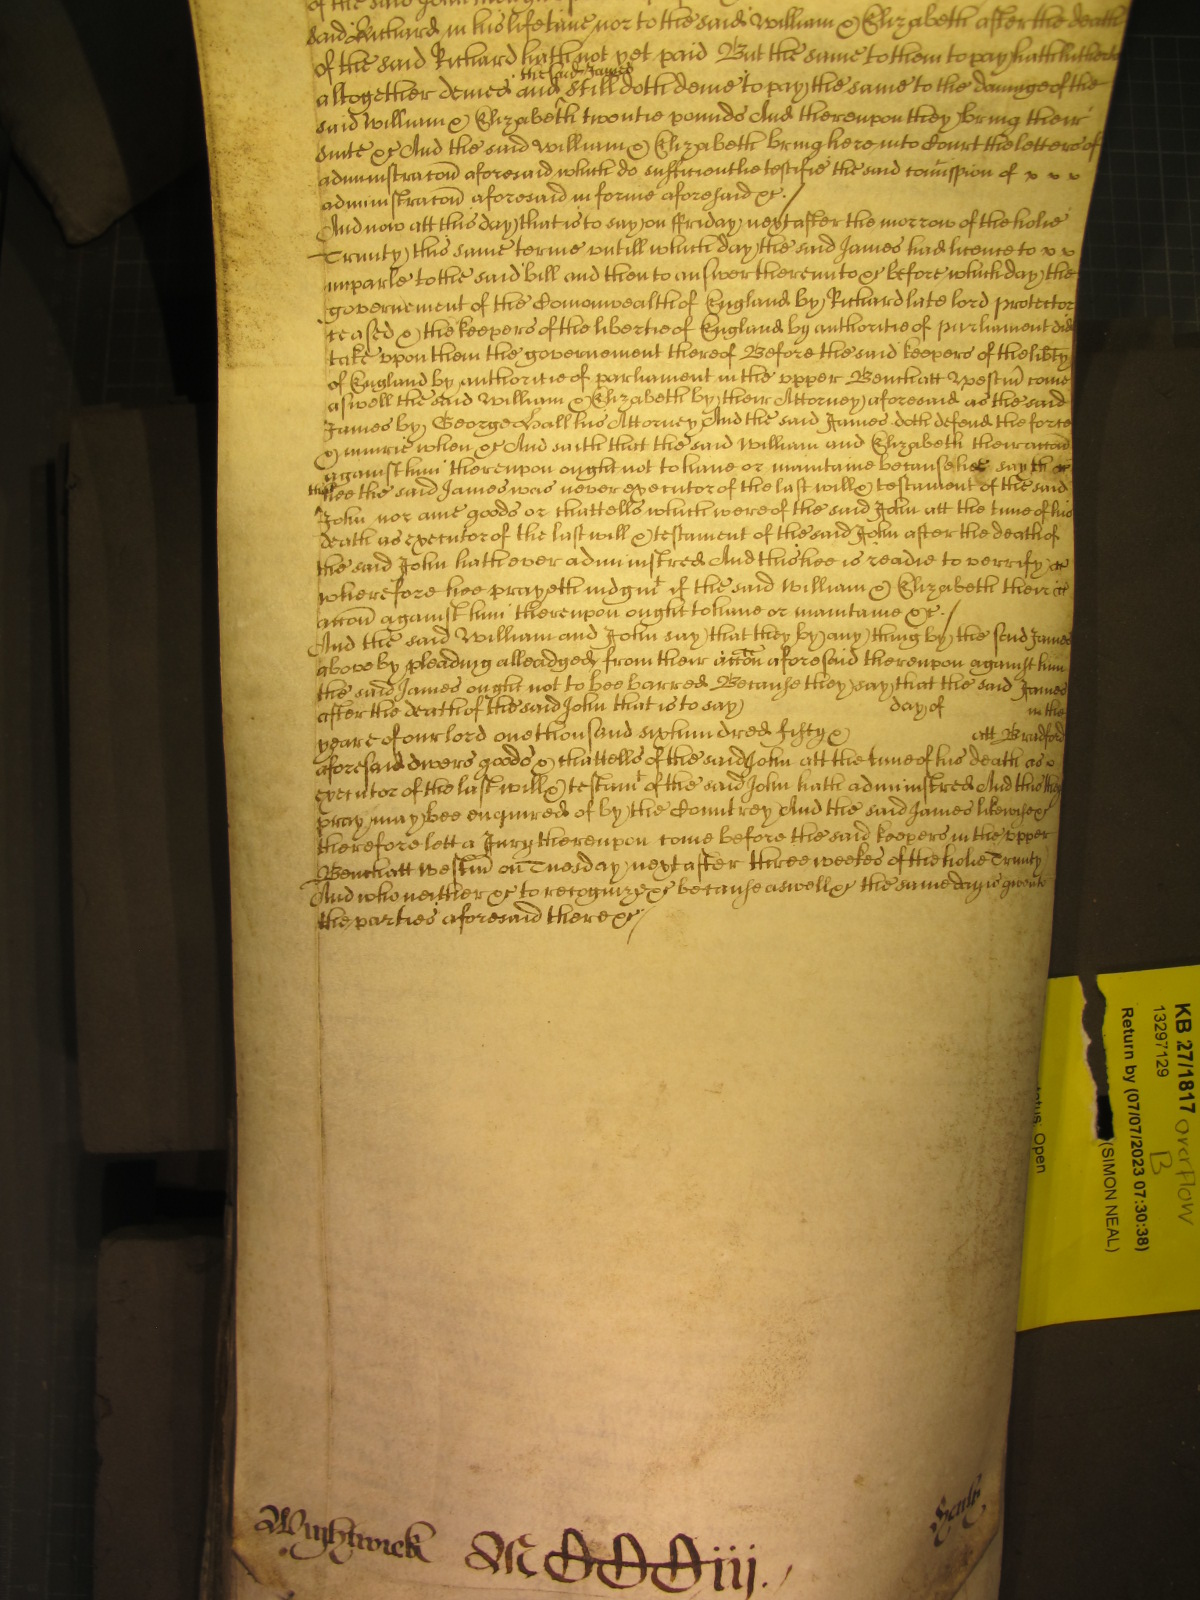 of the said John
said Richard in his life tyme nor to the said William & Elizabeth after the death
of the said Richard hath not yet paid But the same to them to pay hath hitherto
the said James
altogether denied and still doth denie to pay the same to the damage of the
said William & Elizabeth twentie pounds And thereupon they bring their
suite &c And the said William & Elizabeth bring here into Court the letters of
administracon aforesaid which do sufficientlie testifie the said comission of x x x
administracon aforesaid in forme aforesaid &c. /
And now att this day that is to say on ffriday next after the morrow of the holie
Trinity this same terme untill which day the said James had licence to x x
imparle to the said bill and then to answer thereunto &c before which day the
governement of the Comonwealth of England by Richard late lord protector
ceased & the keepers of the libertie of England by authoritie of parliament did
take upon them the governement thereof Before the said keepers of the libty
of England by authoritie of parliament in the upper Bench att Westm come
aswell the said William & Elizabeth by their Attorney aforesaid as the said
James by George Hall his Attorney And the said James doth defend the force
& iniurie when &c And saith that the said William and Elizabeth their accon
against him thereupon ought not to have or maintaine because hee say th &c
that hee the said James was never executor of the last will & testament of the said
John nor anie goods or chattells which were of the said John att the time of his
death as executor of the last will & testament of the said John after the death of
the said John hath ever administred And this hee is readie to verrify &c
wherefore hee prayeth iudgmt if the said William & Elizabeth their &c
accon against him thereupon ought to have or maintaine &c. /
And the said William and John say that they by any thing by the said James
above by pleading alleadged from their accon aforesaid thereupon against him
the said James ought not to bee barred Because they say that the said James
after the death of the said John that is to say day of in the
yeare of our lord one thousand six hundred fifty & att Bradford
aforesaid divers goods & chattells of the said John att the time of his death as
executor of the last will & testamt of the said John hath administred And this they
pray may bee enquired of by the Countrey And the said James likewise &c
therefore lett a Jury thereupon come before the said keepers in the upper
Bench att Westm on Tuesday next after three weekes of the holie Trinity
And who neither &c to recognize &c because aswell &c the same day is given to
the parties aforesaid there &c /
Wightwick MCCCiij. /
KB 27/1817 overflow
B
13297129
Return by (07/07/2023 07:30:38)
(SIMON NEAL)
Status: Open